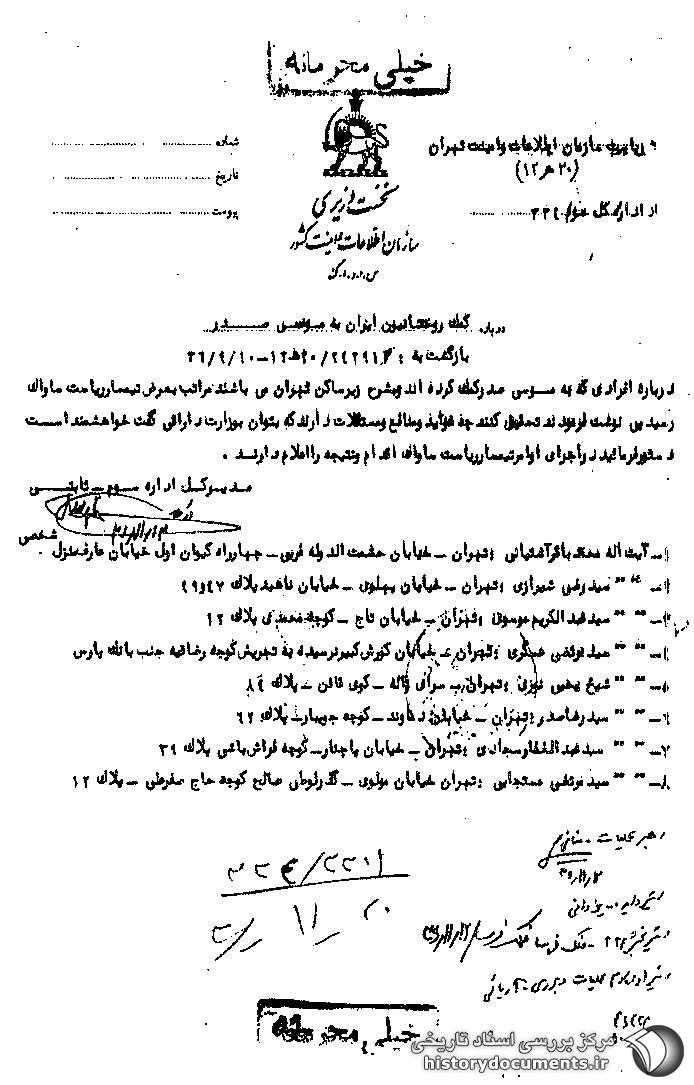 خیلی محرمانه
ریاست سازمان اطلاعات و امنیت تهران
(۲۰ هـ ۱۲)
از اداره کل سوم ۳۳۴
شماره
تاریخ
پیوست
نخست وزیری
سازمان اطلاعات و امنیت کشور
س.ا.و.ا.ک
درباره کمک روحانیون ایران به موسی صدر
بازگشت به : ۲۰/۲۴۲۹۱هـ۱۲-۳۶/۹/۱۰
درباره افرادی که به موسی صدر کمک کرده اند و بشرح زیر ساکن تهران می باشند مراتب بعرض تیمسار ریاست ساواک
رسید پی نوشت فرمودند تحقیق کنند چه عواید و منافع و مستغلات دارند که بتوان بوزارت دارائی گفت خواهشمند است
دستور فرمائید در اجرای اوامر تیمسار ریاست ساواک اقدام و نتیجه را اعلام دارند .
مدیر کل اداره سوم - ثابتی
۱- آیت اله محمد باقر آشتیانی : تهران - خیابان حشمت الدوله غربی - چهارراه کیوان اول خیابان عارف منزل شخصی
۲- " " سید رضی شیرازی : تهران - خیابان پهلوی - خیابان ناهید پلاک ۴۷ و ۴۹
۳- " " سید عبدالکریم موسوی : تهران - خیابان تاج - کوچه محمدی پلاک ۱۲
۴- " " سید مرتضی عسگری : تهران - خیابان کورش کبیر نرسیده به تجریش کوچه رضائیه جنب بانک پارس
۵- " " شیخ یحیی نوری : تهران - سرای ژاله - کوی قائن - پلاک ۸۴
۶- " " سید رضا صدر : تهران - خیابان دماوند - کوچه جویبار - پلاک ۶۲
۷- " " سید عبدالغفار سجادی : تهران - خیابان پاچنار - کوچه فراش باشی پلاک ۳۹
۸- " " سید مرتضی مستجابی : تهران خیابان مولوی - گذر لوطی صالح کوچه حاج صفرعلی - پلاک ۱۲
رهبر عملیات
خیلی محرمانه
مرکز بررسی اسناد تاریخی
historydocuments.ir